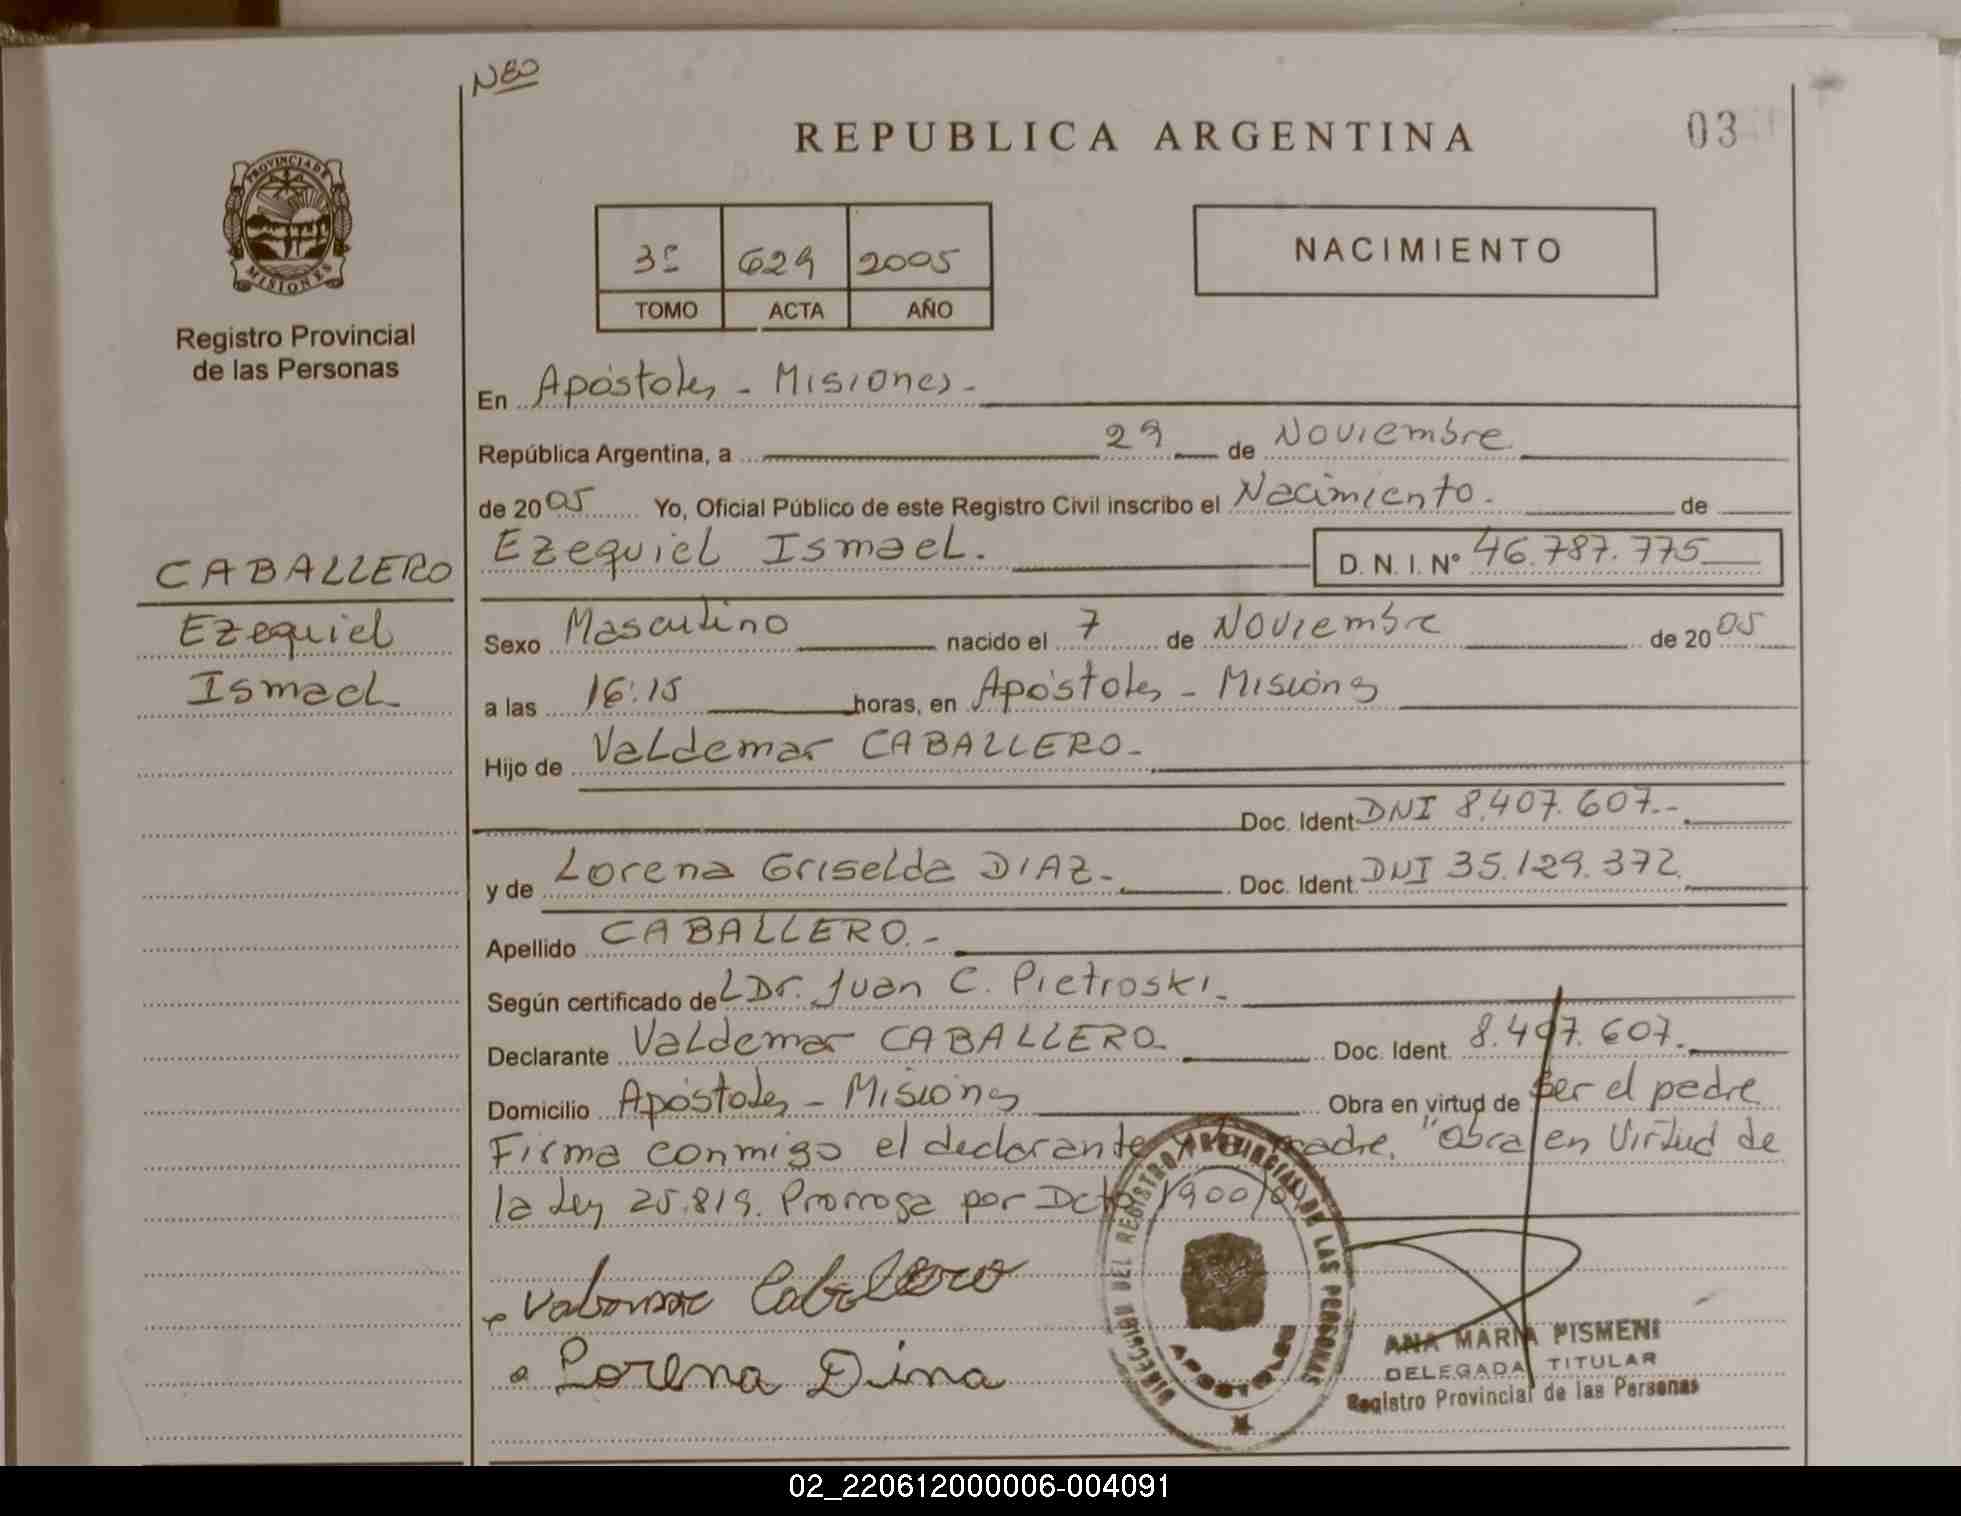 N80
REPUBLICA ARGENTINA
03
PROVINCIA DE
MISIONES
Registro Provincial
de las Personas
3º 629 2005
TOMO ACTA AÑO
NACIMIENTO
En Apóstoles - Misiones -
República Argentina, a 29 de Noviembre
de 2005 Yo, Oficial Público de este Registro Civil inscribo el Nacimiento. de
CABALLERO
Ezequiel
Ismael
Ezequiel Ismael. D. N. I. Nº 46.787.775
Sexo Masculino nacido el 7 de Noviembre de 2005
a las 16:15 horas, en Apóstoles - Misiones
Hijo de Valdemar CABALLERO -
Doc. Ident. DNI 8.407.607.-
y de Lorena Griselda DIAZ. Doc. Ident. DNI 35.129.372
Apellido CABALLERO. -
Según certificado del Dr. Juan C. Pietroski.
Declarante Valdemar CABALLERO. Doc. Ident. 8.407.607.
Domicilio Apóstoles - Misiones Obra en virtud de ser el padre
Firma conmigo el declarante y la madre. "Obra en Virtud de
la Ley 25.819. Prorroga por Dcto 1900/0
Caballero
Lorena
DIRECCIÓN DEL REGISTRO PROVINCIAL DE LAS PERSONAS
APOSTOLES
ANA MARIA PISMENI
DELEGADA TITULAR
Registro Provincial de las Personas
02_220612000006-004091